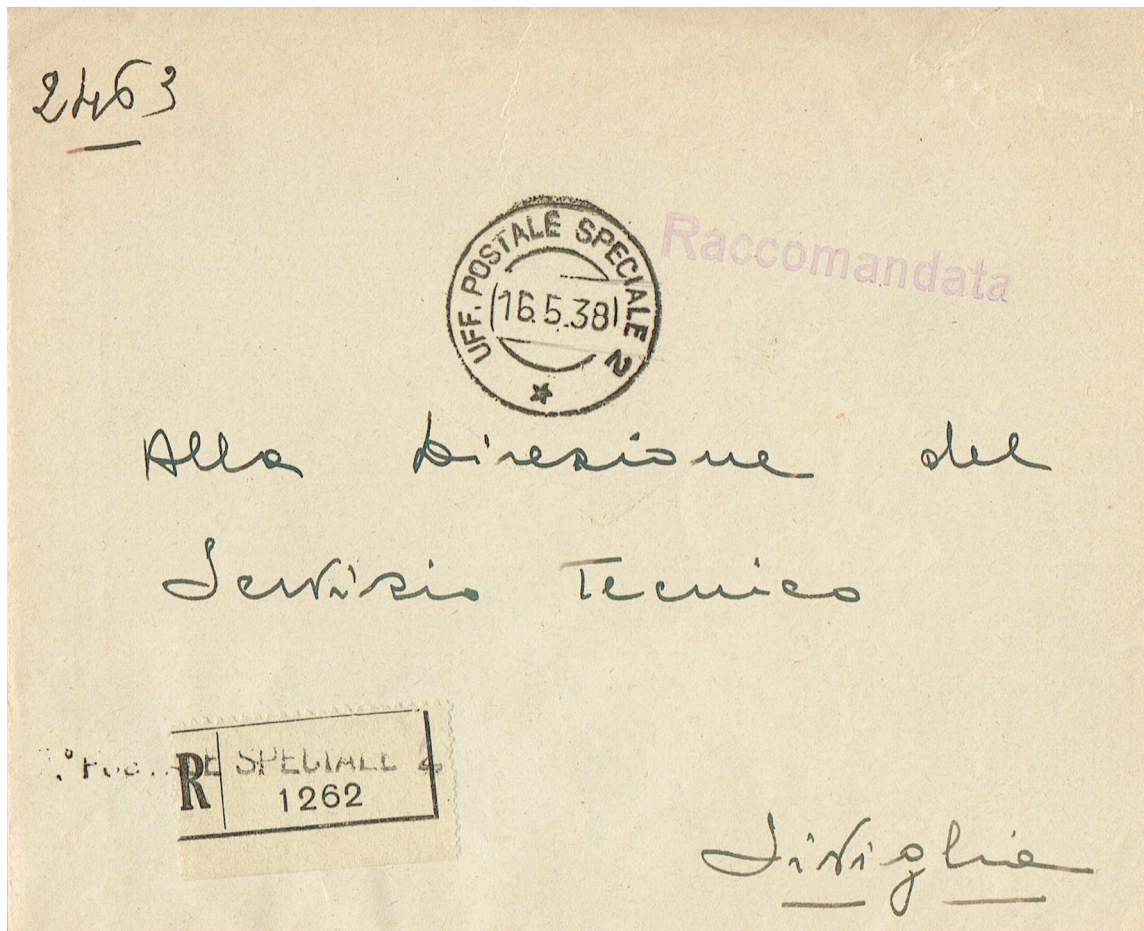 2463
UFF. POSTALE SPECIALE 2
16.5.38
Raccomandata
Alla Direzione del
Servizio Tecnico
R
SPECIALE 2
1262
Siviglia